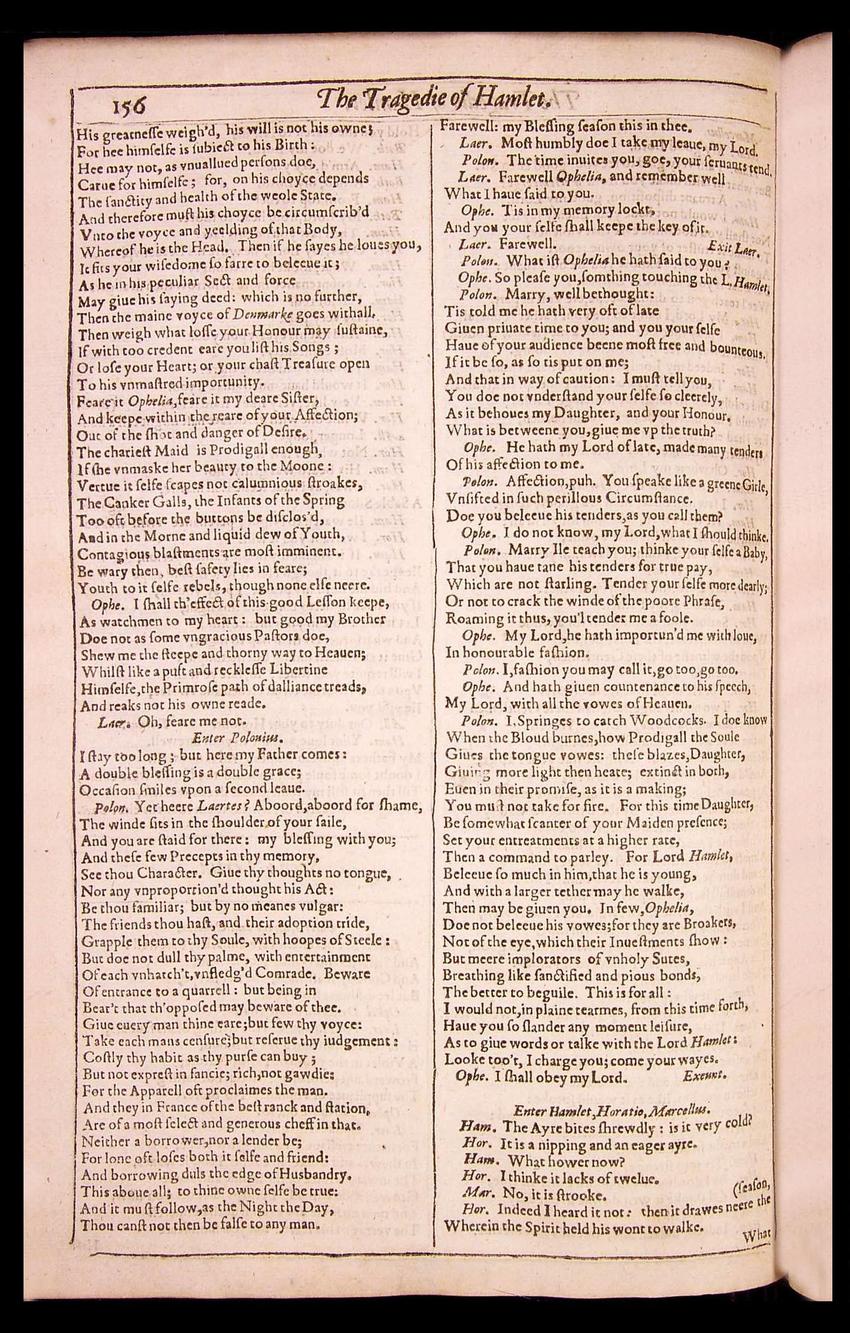 156
The Tragedie of Hamlet.
His greatneſſe weigh'd, his will is not his owne;
For hee himſelfe is ſubiect to his Birth:
Hee may not, as vnuallued perſons doe,
Carue for himſelfe; for, on his choyce depends
The ſanctity and health of the weole State.
And therefore muſt his choyce be circumſcrib'd
Vnto the voyce and yeelding of that Body,
Whereof he is the Head. Then if he ſayes he loues you,
It fits your wiſedome ſo farre to beleeue it;
As he in his peculiar Sect and force
May giue his ſaying deed: which is no further,
Then the maine voyce of Denmarke goes withall.
Then weigh what loſſe your Honour may ſuſtaine,
If with too credent eare you liſt his Songs;
Or loſe your Heart; or your chaſt Treaſure open
To his vnmaſtred importunity.
Feare it Ophelia, feare it my deare Siſter,
And keepe within the reare of your Affection;
Out of the ſhot and danger of Deſire.
The charieſt Maid is Prodigall enough,
If ſhe vnmaske her beauty to the Moone:
Vertue it ſelfe ſcapes not calumnious ſtroakes,
The Canker Galls, the Infants of the Spring
Too oft before the buttons be diſclos'd,
And in the Morne and liquid dew of Youth,
Contagious blaſtments are moſt imminent.
Be wary then, beſt ſafety lies in feare;
Youth to it ſelfe rebels, though none elſe neere.
Ophe. I ſhall th'effect of this good Leſſon keepe,
As watchmen to my heart: but good my Brother
Doe not as ſome vngracious Paſtors doe,
Shew me the ſteepe and thorny way to Heauen;
Whilſt like a puft and reckleſſe Libertine
Himſelfe, the Primroſe path of dalliance treads,
And reaks not his owne reade.
Laer. Oh, feare me not.
Enter Polonius.
I ſtay too long; but here my Father comes:
A double bleſſing is a double grace;
Occaſion ſmiles vpon a ſecond leaue.
Polon. Yet heere Laertes? Aboord, aboord for ſhame,
The winde ſits in the ſhoulder of your ſaile,
And you are ſtaid for there: my bleſſing with you;
And theſe few Precepts in thy memory,
See thou Character. Giue thy thoughts no tongue,
Nor any vnproportion'd thought his Act:
Be thou familiar; but by no meanes vulgar:
The friends thou haſt, and their adoption tride,
Grapple them to thy Soule, with hoopes of Steele:
But doe not dull thy palme, with entertainment
Of each vnhatch't, vnfledg'd Comrade. Beware
Of entrance to a quarrell: but being in
Bear't that th'oppoſed may beware of thee.
Giue euery man thine eare; but few thy voyce:
Take each mans cenſure; but reſerue thy iudgement:
Coſtly thy habit as thy purſe can buy;
But not expreſt in fancie; rich, not gawdie:
For the Apparell oft proclaimes the man.
And they in France of the beſt ranck and ſtation,
Are of a moſt ſelect and generous cheff in that.
Neither a borrower, nor a lender be;
For lone oft loſes both it ſelfe and friend:
And borrowing duls the edge of Husbandry.
This aboue all; to thine owne ſelfe be true:
And it muſt follow, as the Night the Day,
Thou canſt not then be falſe to any man.
Farewell: my Bleſſing ſeaſon this in thee.
Laer. Moſt humbly doe I take my leaue, my Lord.
Polon. The time inuites you, goe, your ſeruants tend.
Laer. Farewell Ophelia, and remember well
What I haue ſaid to you.
Ophe. Tis in my memory lockt,
And you your ſelfe ſhall keepe the key of it.
Laer. Farewell. Exit Laer.
Polon. What iſt Ophelia he hath ſaid to you?
Ophe. So pleaſe you, ſomthing touching the L. Hamlet,
Polon. Marry, well bethought:
Tis told me he hath very oft of late
Giuen priuate time to you; and you your ſelfe
Haue of your audience beene moſt free and bounteous.
If it be ſo, as ſo tis put on me;
And that in way of caution: I muſt tell you,
You doe not vnderſtand your ſelfe ſo cleerely,
As it behoues my Daughter, and your Honour.
What is betweene you, giue me vp the truth?
Ophe. He hath my Lord of late, made many tenders
Of his affection to me.
Polon. Affection, puh. You ſpeake like a greene Girle,
Vnſifted in ſuch perillous Circumſtance.
Doe you beleeue his tenders, as you call them?
Ophe. I do not know, my Lord, what I ſhould thinke.
Polon. Marry Ile teach you; thinke your ſelfe a Baby,
That you haue tane his tenders for true pay,
Which are not ſtarling. Tender your ſelfe more dearly;
Or not to crack the winde of the poore Phraſe,
Roaming it thus, you'l tender me a foole.
Ophe. My Lord, he hath importun'd me with loue,
In honourable faſhion.
Polon. I, faſhion you may call it, go too, go too.
Ophe. And hath giuen countenance to his ſpeech,
My Lord, with all the vowes of Heauen.
Polon. I, Springes to catch Woodcocks. I doe know
When the Bloud burnes, how Prodigall the Soule
Giues the tongue vowes: theſe blazes, Daughter,
Giuing more light then heate; extinct in both,
Euen in their promiſe, as it is a making;
You muſt not take for fire. For this time Daughter,
Be ſomewhat ſcanter of your Maiden preſence;
Set your entreatments at a higher rate,
Then a command to parley. For Lord Hamlet,
Beleeue ſo much in him, that he is young,
And with a larger tether may he walke,
Then may be giuen you. In few, Ophelia,
Doe not beleeue his vowes; for they are Broakers,
Not of the eye, which their Inueſtments ſhow:
But meere implorators of vnholy Sutes,
Breathing like ſanctified and pious bonds,
The better to beguile. This is for all:
I would not, in plaine tearmes, from this time forth,
Haue you ſo ſlander any moment leiſure,
As to giue words or talke with the Lord Hamlet:
Looke too't, I charge you; come your wayes.
Ophe. I ſhall obey my Lord. Exeunt.
Enter Hamlet, Horatio, Marcellus.
Ham. The Ayre bites ſhrewdly: is it very cold?
Hor. It is a nipping and an eager ayre.
Ham. What hower now?
Hor. I thinke it lacks of twelue.
Mar. No, it is ſtrooke. (ſeaſon,
Hor. Indeed I heard it not: then it drawes neere the
Wherein the Spirit held his wont to walke.
What